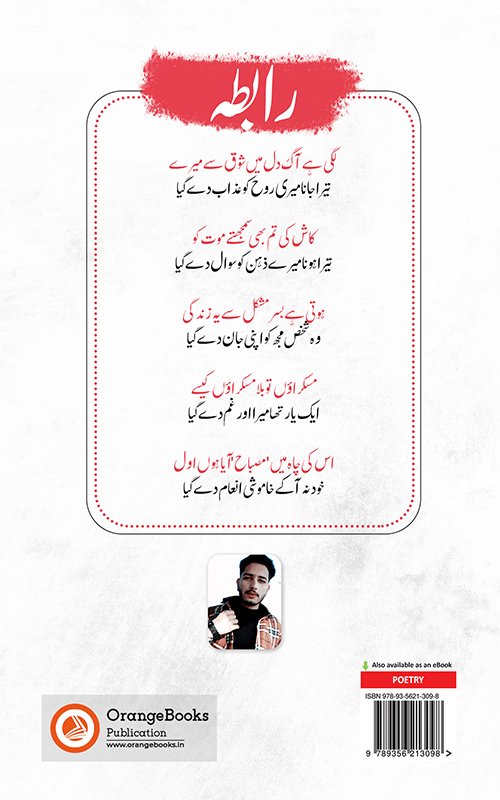 رابطہ
لگی ہے آگ دل میں شوق سے میرے
تیرا جانا میری روح کو عذاب دے گیا
کاش کی تم بھی سمجھتے موت کو
تیرا ہونا میرے ذہن کو سوال دے گیا
ہوتی ہے بسر مشکل سے یہ زندگی
وہ شخص مجھ کو اپنی جان دے گیا
مسکراؤں تو بلا مسکراؤں کیسے
ایک یار تھا میرا اور غم دے گیا
اس کی چاہ میں 'مصباح' آیا ہوں اول
خود نہ آ کے خاموشی انعام دے گیا
Also available as an eBook
POETRY
ISBN 978-93-5621-309-8
9 789356 213098 >
OrangeBooks
Publication
www.orangebooks.in